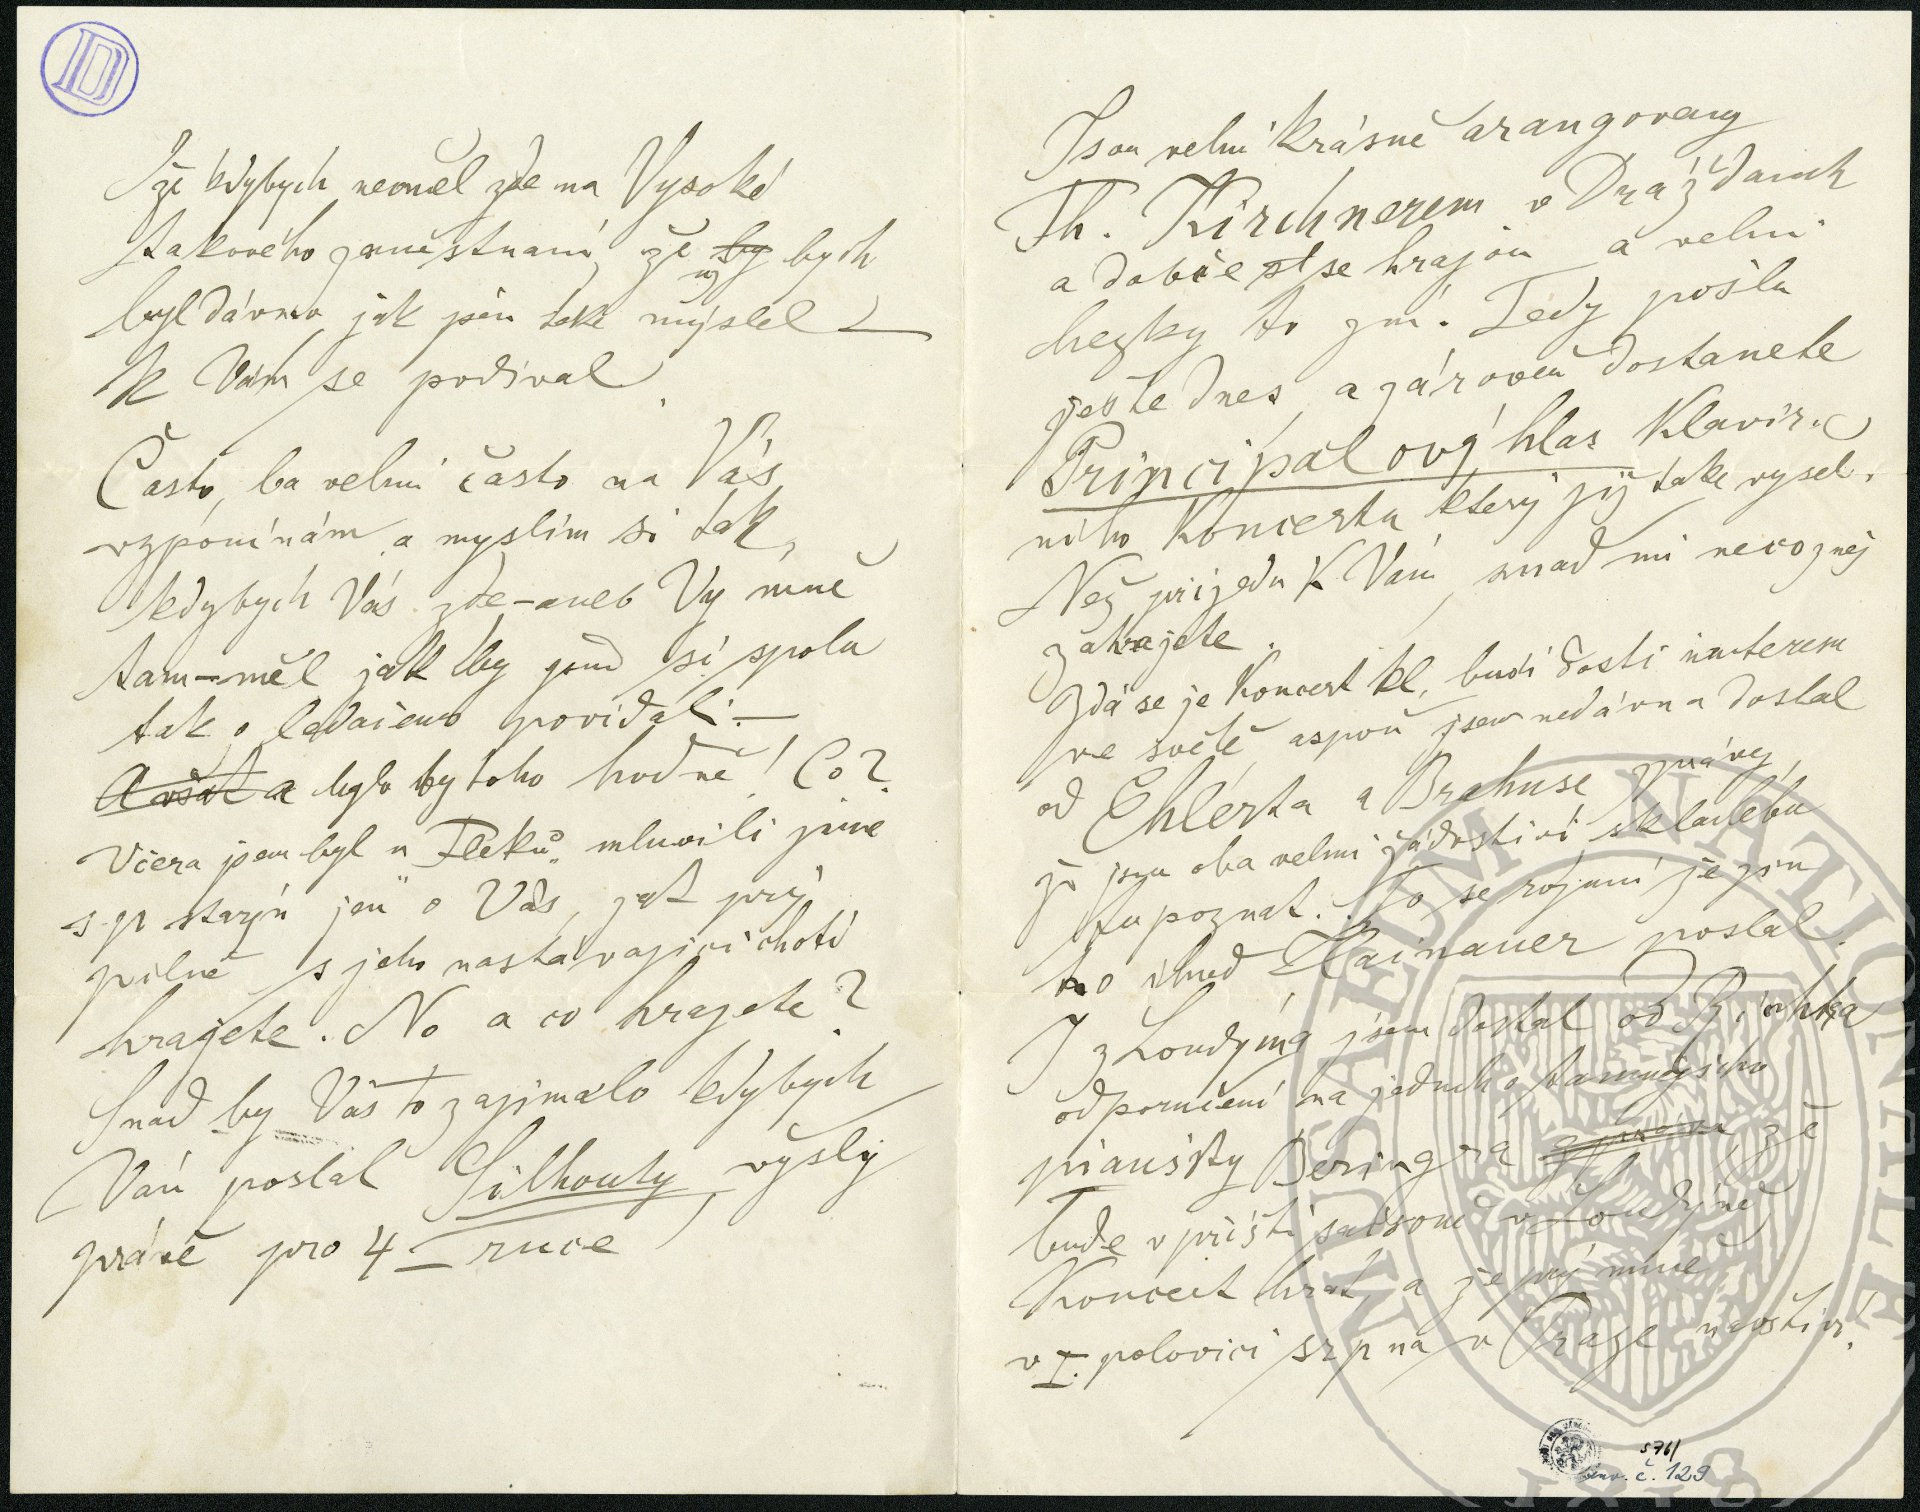 že kdybych neměl zde na Vysoké
takového zaměstnaní, že by bych
už
byl dávno jak jsem také mýslel
k Vám se podíval.
Často, ba velmi často na Vás
vzpomínám a myslím si tak,
kdybych Vás zde – aneb Vy mně
tam – měl jak by jsme si spolu
tak o ledačems povídali. –
Avšak a bylo by toho hodně! Co?
Včera jsem byl u Fleků, mluvili jsme
s p starým jen o Vás, jak prý
pilně s jeho nastávající chotí
hrajete. No a co hrajete?
Snad by Vás to zajímalo kdybych
Vám poslal Silhouty, vyšlý
právě pro 4 ruce
Jsou velmi krásně arangovany
Th. Kirchnerem v Drážďanech
a dobře se hrajou a velmi
hezky to zní. Tedy pošlu
ješte dnes, a zároveň dostanete
Principálový hlas klavír.
ního koncertu který jíž take vysel.
Než prijedu k Vám, snad mi neco z něj
zahrajete.
Zdá se že Koncert kl. budí dosti interesu
ve světě, aspoň jsem nedávna dostal
od Ehlerta a Brahmse zprávy,
že jsou oba velmi žádostivi skladbu
tu poznat. To se rozumí že jim
ho ihned Hainauer poslal.
I z Londýna jsem dostal od Richtra
odporučení na jednoho tamnějsího
pianisty Beringra a prava že
bude v přišti saisoně v Londýně
Koncert hrát a že prý mne
v I. polovici srpna v Praze navštiví!
576/
inv. č. 129
MUSAEUM NATIONALE
1818